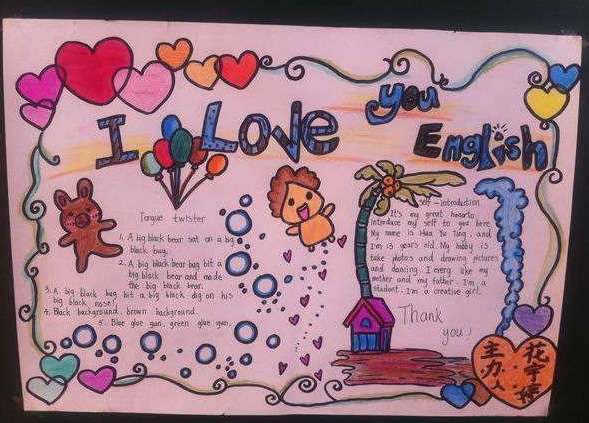 I Love you
English
Tongue twister
1. A big black bear sat on a big
black bug.
2. A big black bear bug bit a
big black bear and made
the big black bear.
3. A big black bug bit a big black dig on his
big black nose!
4. Black background, brown background.
5. Blue glue gun, green glue gun.
Self-introduction
It's my great honorto
introduce my self to you here.
My name is Hua Yu Ting, and
I'm 13 years old. My hobby is
take photos and drawing pictures
and dancing. I every like my
mother and my father. I'm a
student. I'm a creative girl.
Thank
you!
主办人
花宇婷